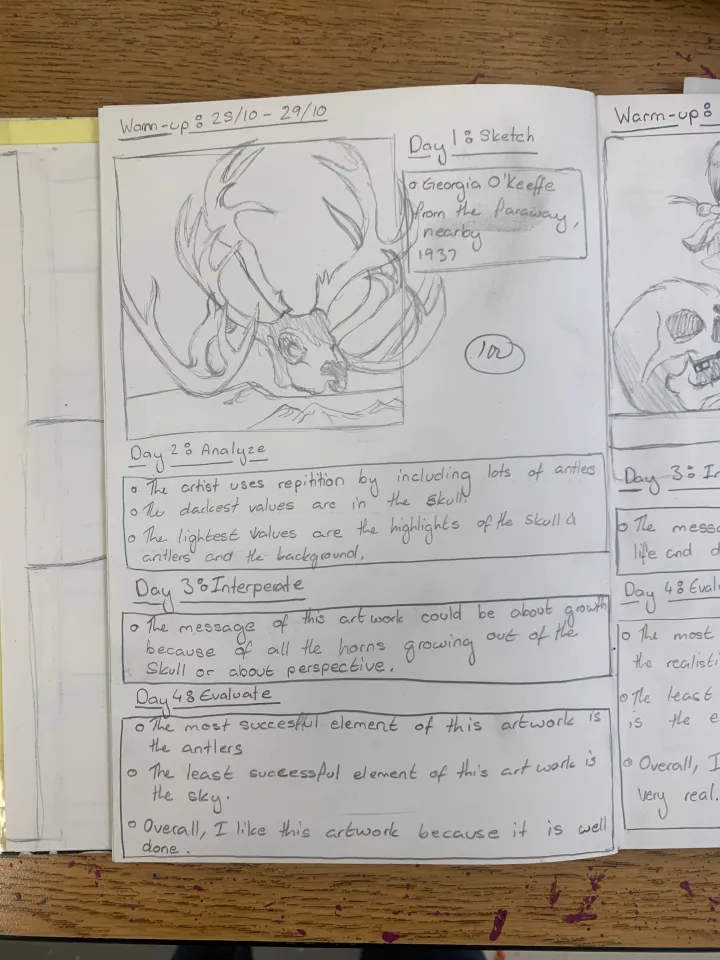 Warm-up: 25/10 - 29/10
Day 1: Sketch
Georgia O'Keeffe
from the Faraway,
nearby
1937
100
Day 2: Analyze
The artist uses repitition by including lots of antlers
The darkest values are in the skull.
The lightest values are the highlights of the skull &
antlers and the background.
Day 3: Interperate
The message of this artwork could be about growth
because of all the horns growing out of the
Skull or about perspective.
Day 4: Evaluate
The most succesful element of this artwork is
the antlers
The least successful element of this art work is
the sky.
Overall, I like this artwork because it is well
done.
Warm-up:
Day 3:
The
life and
Day 4:
The most
the
The least
is the
Overall, I
very real.